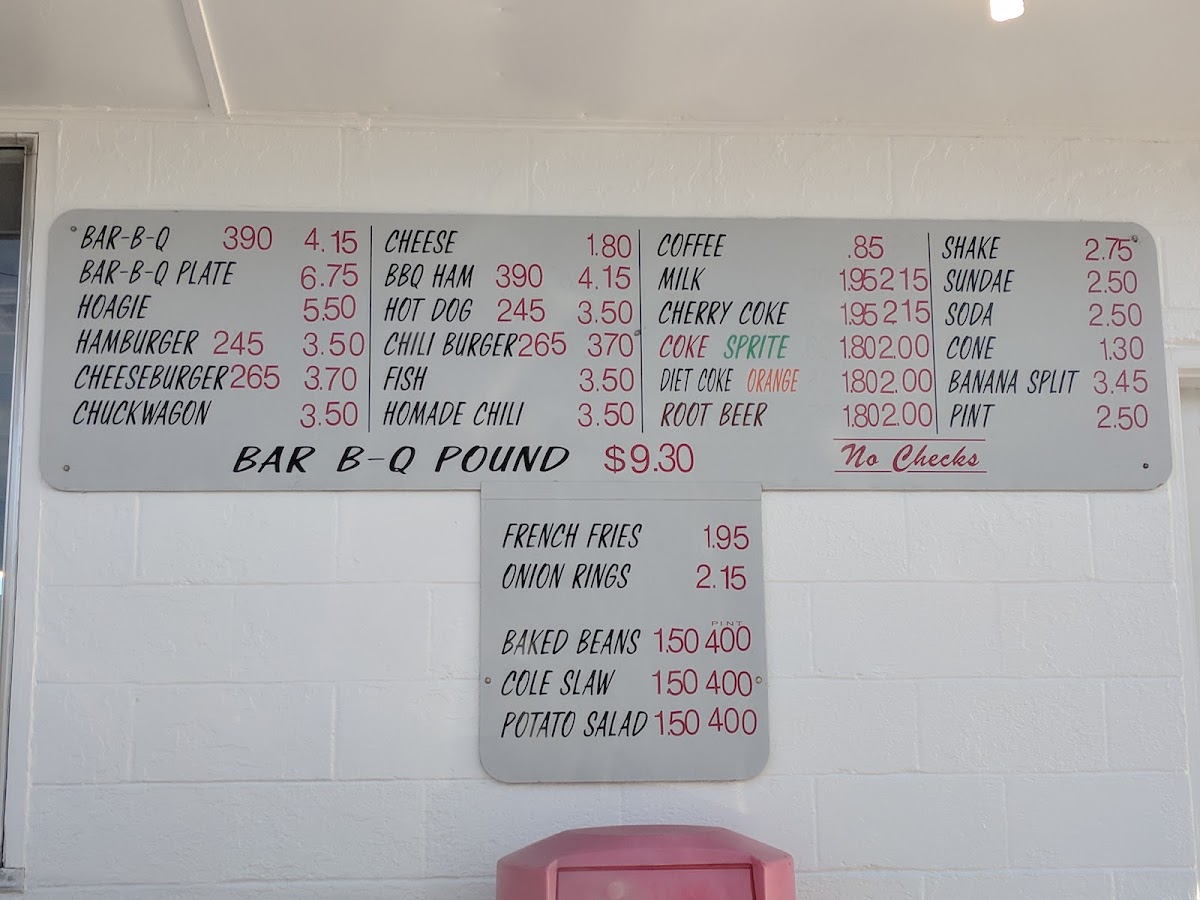 BAR-B-Q 390 4.15
BAR-B-Q PLATE 6.75
HOAGIE 5.50
HAMBURGER 245 3.50
CHEESEBURGER 265 3.70
CHUCKWAGON 3.50
CHEESE 1.80
BBQ HAM 390 4.15
HOT DOG 245 3.50
CHILI BURGER 265 370
FISH 3.50
HOMADE CHILI 3.50
COFFEE .85
MILK 1.95 215
CHERRY COKE 1.95 215
COKE SPRITE 1.80 2.00
DIET COKE ORANGE 1.80 2.00
ROOT BEER 1.80 2.00
SHAKE 2.75
SUNDAE 2.50
SODA 2.50
CONE 1.30
BANANA SPLIT 3.45
PINT 2.50
BAR B-Q POUND $9.30
No Checks
FRENCH FRIES 1.95
ONION RINGS 2.15
PINT
BAKED BEANS 1.50 400
COLE SLAW 1.50 400
POTATO SALAD 1.50 400